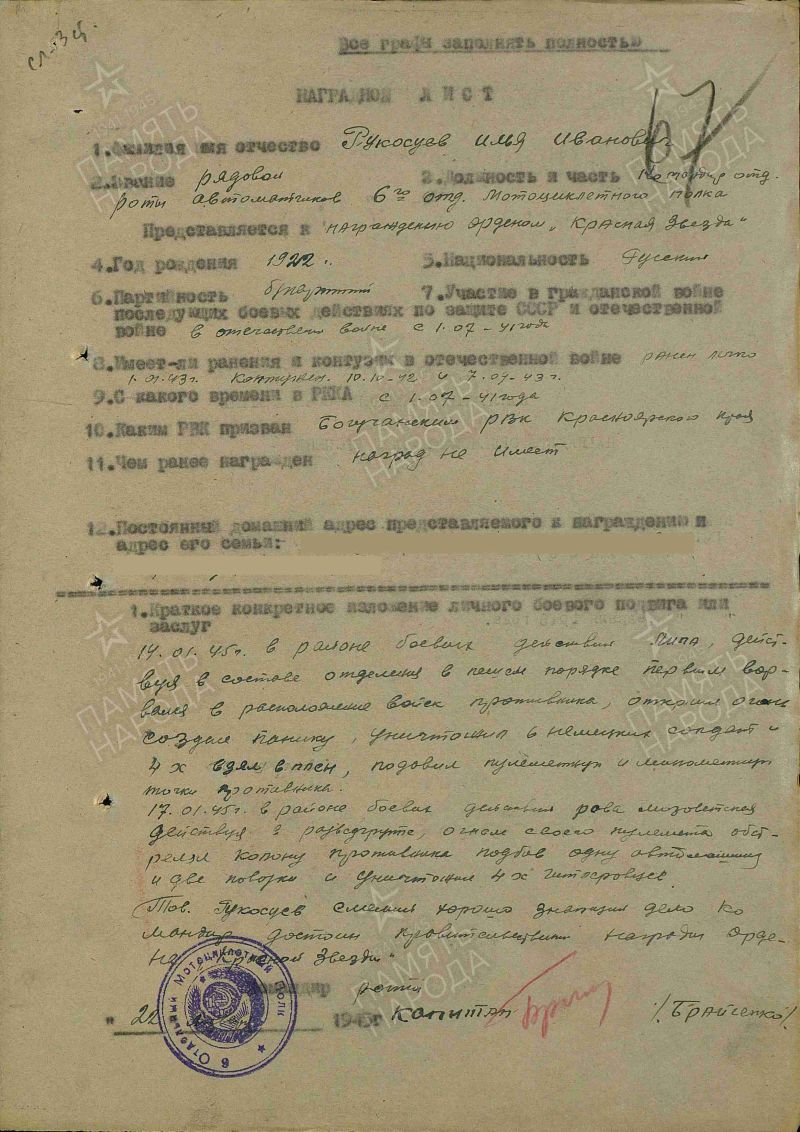 сл-3 ч.
Все графы заполнять полностью
НАГРАДНОЙ ЛИСТ
67
1.Фамилия имя отчество Рукосуев Илья Иванович
2.Звание рядовой 3.Должность и часть Командир отд.
роты автоматчиков 6го отд. Мотоциклетного полка
Представляется к награждению орденом „Красная Звезда"
4.Год рождения 1922 г. 5.Национальность Русский
6.Партийность б/партийный 7.Участие в гражданской войне
последующих боевых действиях по защите СССР и отечественной
войне в отечествен войне с 1.07-41 года
8.Имеет-ли ранения и контузии в отечественной войне ранен легко
1.01.43г. Контужен 10.10-42 и 7.07-43г.
9.С какого времени в РККА с 1.07-41 года
10.Каким РВК призван Богучанским РВК Красноярского края
11.Чем ранее награжден наград не имеет
12.Постоянный домашний адрес представляемого к награждению и
адрес его семьи:
1.Краткое конкретное изложение личного боевого подвига или
заслуг
14.01.45г. в районе боевых действий Липа, дейст-
вуя в составе отделения в пешем порядке первым вор-
вался в расположение войск противника, открыл огонь
создал панику, уничтожил 6 немецких солдат и
4х взял в плен, подавил пулеметную и минометную
точки противника.
17.01.45г. в районе боевых действий
действуя в разведгруппе, огнем своего пулемета обст-
релял колону противника подбив одну автомашину
и две повозки и уничтожил 4х гитлеровцев.
Тов. Рукосуев смелый хорошо знающий дело Ко
мандир достоин правительственной награды Орде-
на „Красной Звезды"
Командир роты
"22 1945г капитан /Брайченко/
6 Отдельный Мотоциклетный полк
ПАМЯТЬ НАРОДА
1941-1945